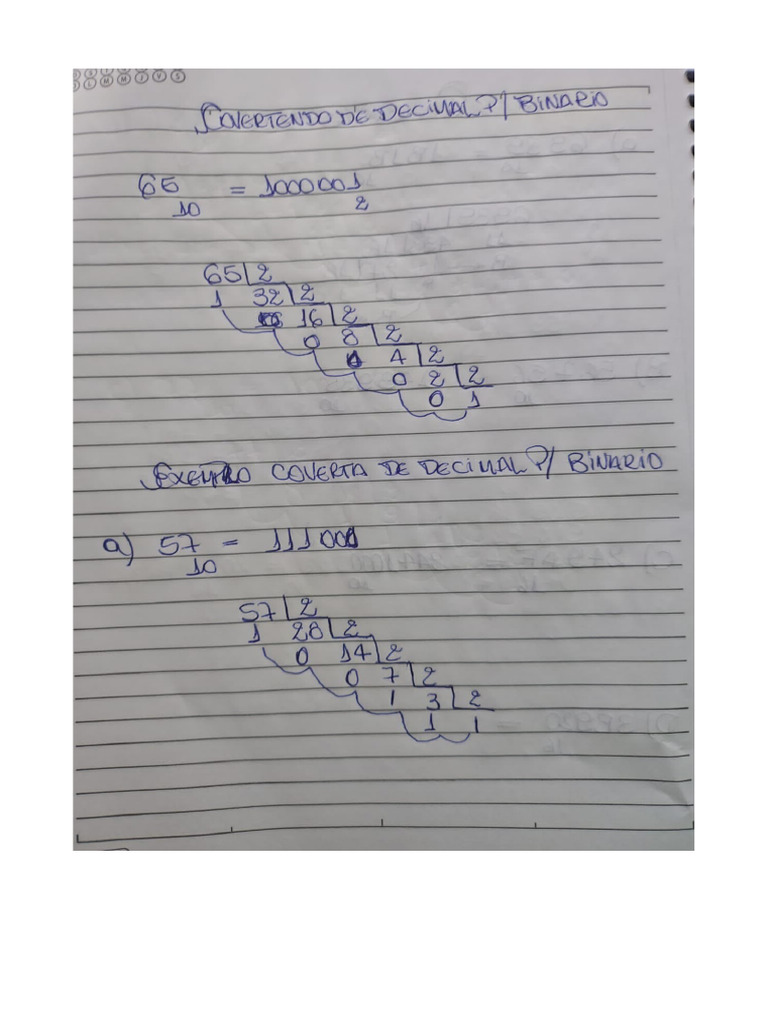 COVERTENDO DE DECIMAL P/ BINARIO
65 = 1000001
10 2
65 2
1 32 2
16 2
0 8 2
0 4 2
0 2 2
0 1
EXEMPLO COVERTA DE DECIMAL P/ BINARIO
a) 57 = 111001
10
57 2
1 28 2
0 14 2
0 7 2
1 3 2
1 1